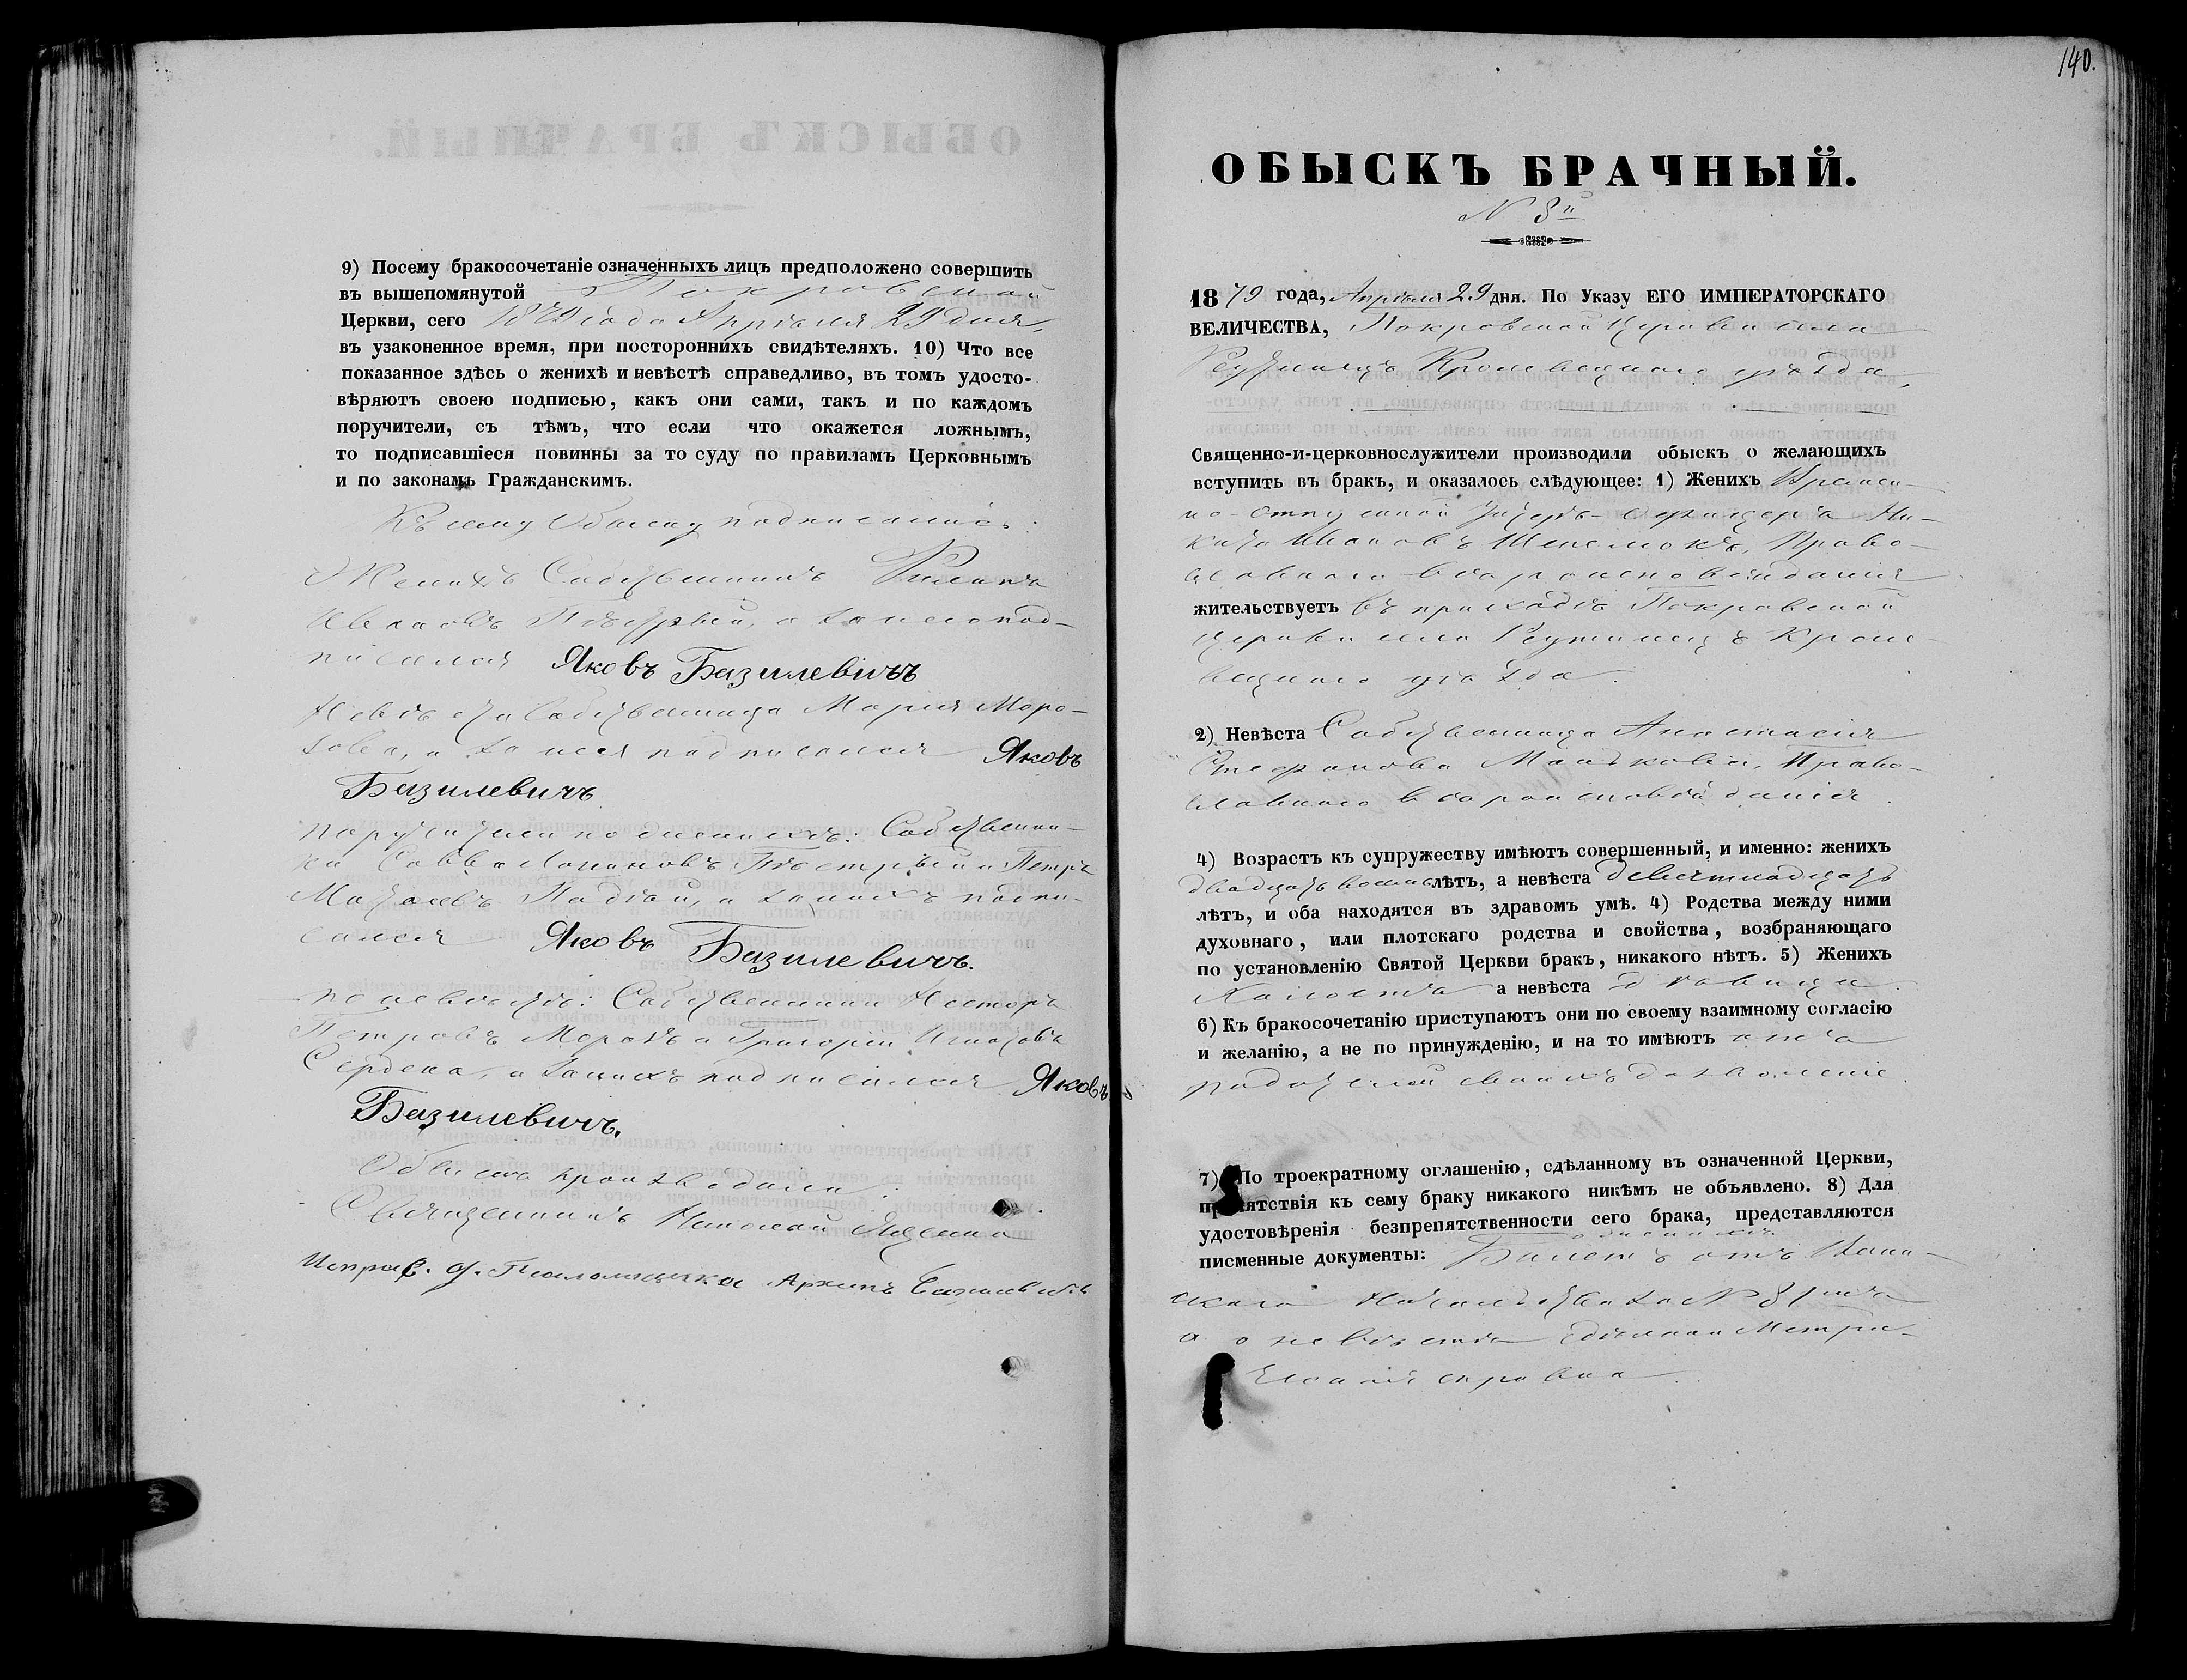 9) Посему бракосочетаніе означенныхъ лицъ предположено совершить
въ вышепомянутой Покровской
Церкви, сего 1879 года Апрѣля 29 дня,
въ узаконенное время, при постороннихъ свидѣтеляхъ. 10) Что все
показанное здѣсь о женихѣ и невѣстѣ справедливо, въ томъ удосто-
вѣряютъ своею подписью, какъ они сами, такъ и по каждомъ
поручители, съ тѣмъ, что если что окажется ложнымъ,
то подписавшіеся повинны за то суду по правиламъ Церковнымъ
и по законамъ Гражданскимъ.
Къ сему обыску подписались:
Женихъ Собственникъ Филипъ
Ивановъ Пѣстрый, а за него под-
писался Яковъ Базилевичъ
Невѣста Собственница Марія Моро-
зова, а за нея подписался Яковъ
Базилевичъ
Поручители по женихѣ: Собственни-
ки Савва Логиновъ Пѣстрый и Петръ
а за нихъ подпи-
сался Яковъ Базилевичъ.
по невѣстѣ: Собственники Несторъ
Петровъ Морозъ и Григорій Игнатовъ
Сердека, а за нихъ подписался Яковъ
Базилевичъ.
Обыскъ производили:
Священникъ Николай
Исправ. д. Псаломщика Архипъ Базилевичъ
140.
ОБЫСКЪ БРАЧНЫЙ.
N 8й
1879 года, Апрѣля 29 дня. По Указу ЕГО ИМПЕРАТОРСКАГО
ВЕЛИЧЕСТВА, Покровской Церкви села
Реутинецъ Кролевецкаго уѣзда,
Священно-и-церковнослужители производили обыскъ о желающихъ
вступить въ бракъ, и оказалось слѣдующее: 1) Женихъ Времен-
но-отпускной Унтеръ-офицеръ Ни-
кита Ивановъ Шепелюкъ, Право-
славнаго вѣроисповѣданія
жительствуетъ въ приходѣ Покровской
церкви села Реутинецъ Кроле-
вецкаго уѣзда.
2) Невѣста Собственница Анастасія
Стефанова Манькова, Право-
славнаго вѣроисповѣданія.
4) Возрастъ къ супружеству имѣютъ совершенный, и именно: женихъ
двадцать восемь лѣтъ, а невѣста девятнадцать
лѣтъ, и оба находятся въ здравомъ умѣ. 4) Родства между ними
духовнаго, или плотскаго родства и свойства, возбраняющаго
по установленію Святой Церкви бракъ, никакого нѣтъ. 5) Женихъ
Холостъ а невѣста дѣвица.
6) Къ бракосочетанію приступаютъ они по своему взаимному согласію
и желанію, а не по принужденію, и на то имѣютъ отъ
родителей своихъ дозволеніе.
7) По троекратному оглашенію, сдѣланному въ означенной Церкви,
препятствія къ сему браку никакого никѣмъ не объявлено. 8) Для
удостовѣренія безпрепятственности сего брака, представляются
писменные документы: Билетъ отъ Воин-
скаго Начальства за N
а о невѣстѣ сдѣлана Метри-
ческая справка.